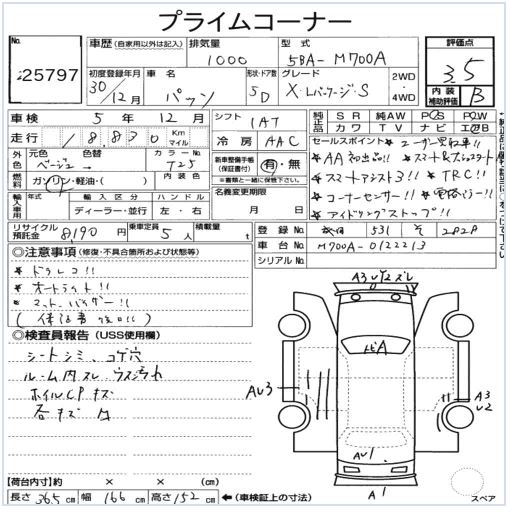 プライムコーナー
No. 25797
車歴 (自家用以外は記入) 排気量 1000 型式 5BA- M700A
評価点 3.5
内装補助評価 B
初度登録年月 30/12月 車名 パッソ 形状・ドア数 5D グレード X・Lパッケージ・S 2WD ・ 4WD
車検 5年 12月 シフト IAT
純正品 SR 純AW PS PW カワ TV ナビ エアB
走行 18,830 Km マイル 冷房 AAC
セールスポイント ★ユーザー買取車!!
★AA初出品!! ★スマート&プッシュスタート
★スマートアシスト3!! ★TRC!!
★コーナーセンサー!!
★アイドリングストップ!!
外色 元色 ベージュ 色替 → カラーNo. T25
新車整備手帳(保証書付) 有・無
※書類と一緒に保管下さい。
燃料 ガソリン・軽油・( ) 内装色
名義変更期限 月 日
輸入車用 モデル年式 輸入区分 ハンドル
年 ディーラー・並行 左・右
リサイクル預託金 8,190 円 乗車定員 5 人 積載量 t
登録No. 531 そ 2828
車台No. M700A-0122213
シリアルNo.
◎注意事項 (修復・不具合箇所および状態等)
★ドラレコ!!
★オートライト!!
★マット、バイザー!!
(保証書後日!!)
◎検査員報告 (USS使用欄)
シートシミ、コゲ穴
ルーム内スレ ウス汚れ
ホイルCPキズ
各キズ凹
A3 U2ズレ
トビA
AU3
A3
U2
AU1
A1
【荷台内寸】約 × × (cm)
長さ 365 cm 幅 166 cm 高さ 152 cm ←(車検証上の寸法)
スペア